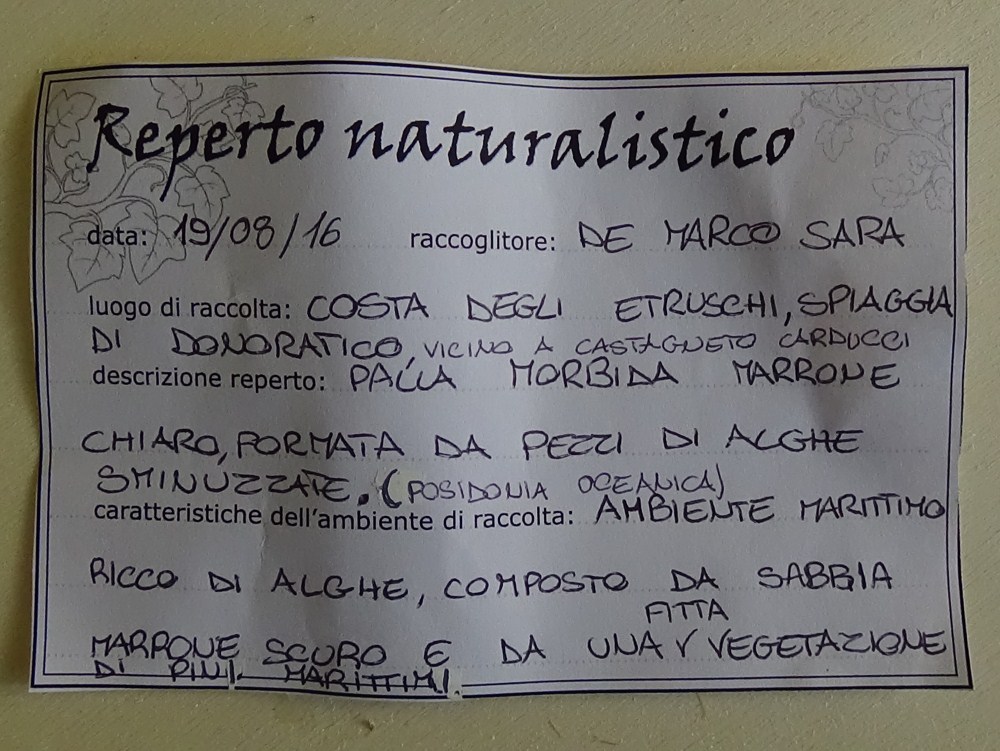 Reperto naturalistico
data: 19/08/16 raccoglitore: DE MARCO SARA
luogo di raccolta: COSTA DEGLI ETRUSCHI, SPIAGGIA
DI DONORATICO, VICINO A CASTAGNETO CARDUCCI
descrizione reperto: PALLA MORBIDA MARRONE
CHIARO, FORMATA DA PEZZI DI ALGHE
SMINUZZATE. (POSIDONIA OCEANICA)
caratteristiche dell'ambiente di raccolta: AMBIENTE MARITTIMO
RICCO DI ALGHE, COMPOSTO DA SABBIA
FITTA
MARRONE SCURO E DA UNA V VEGETAZIONE
DI PINI MARITTIMI.